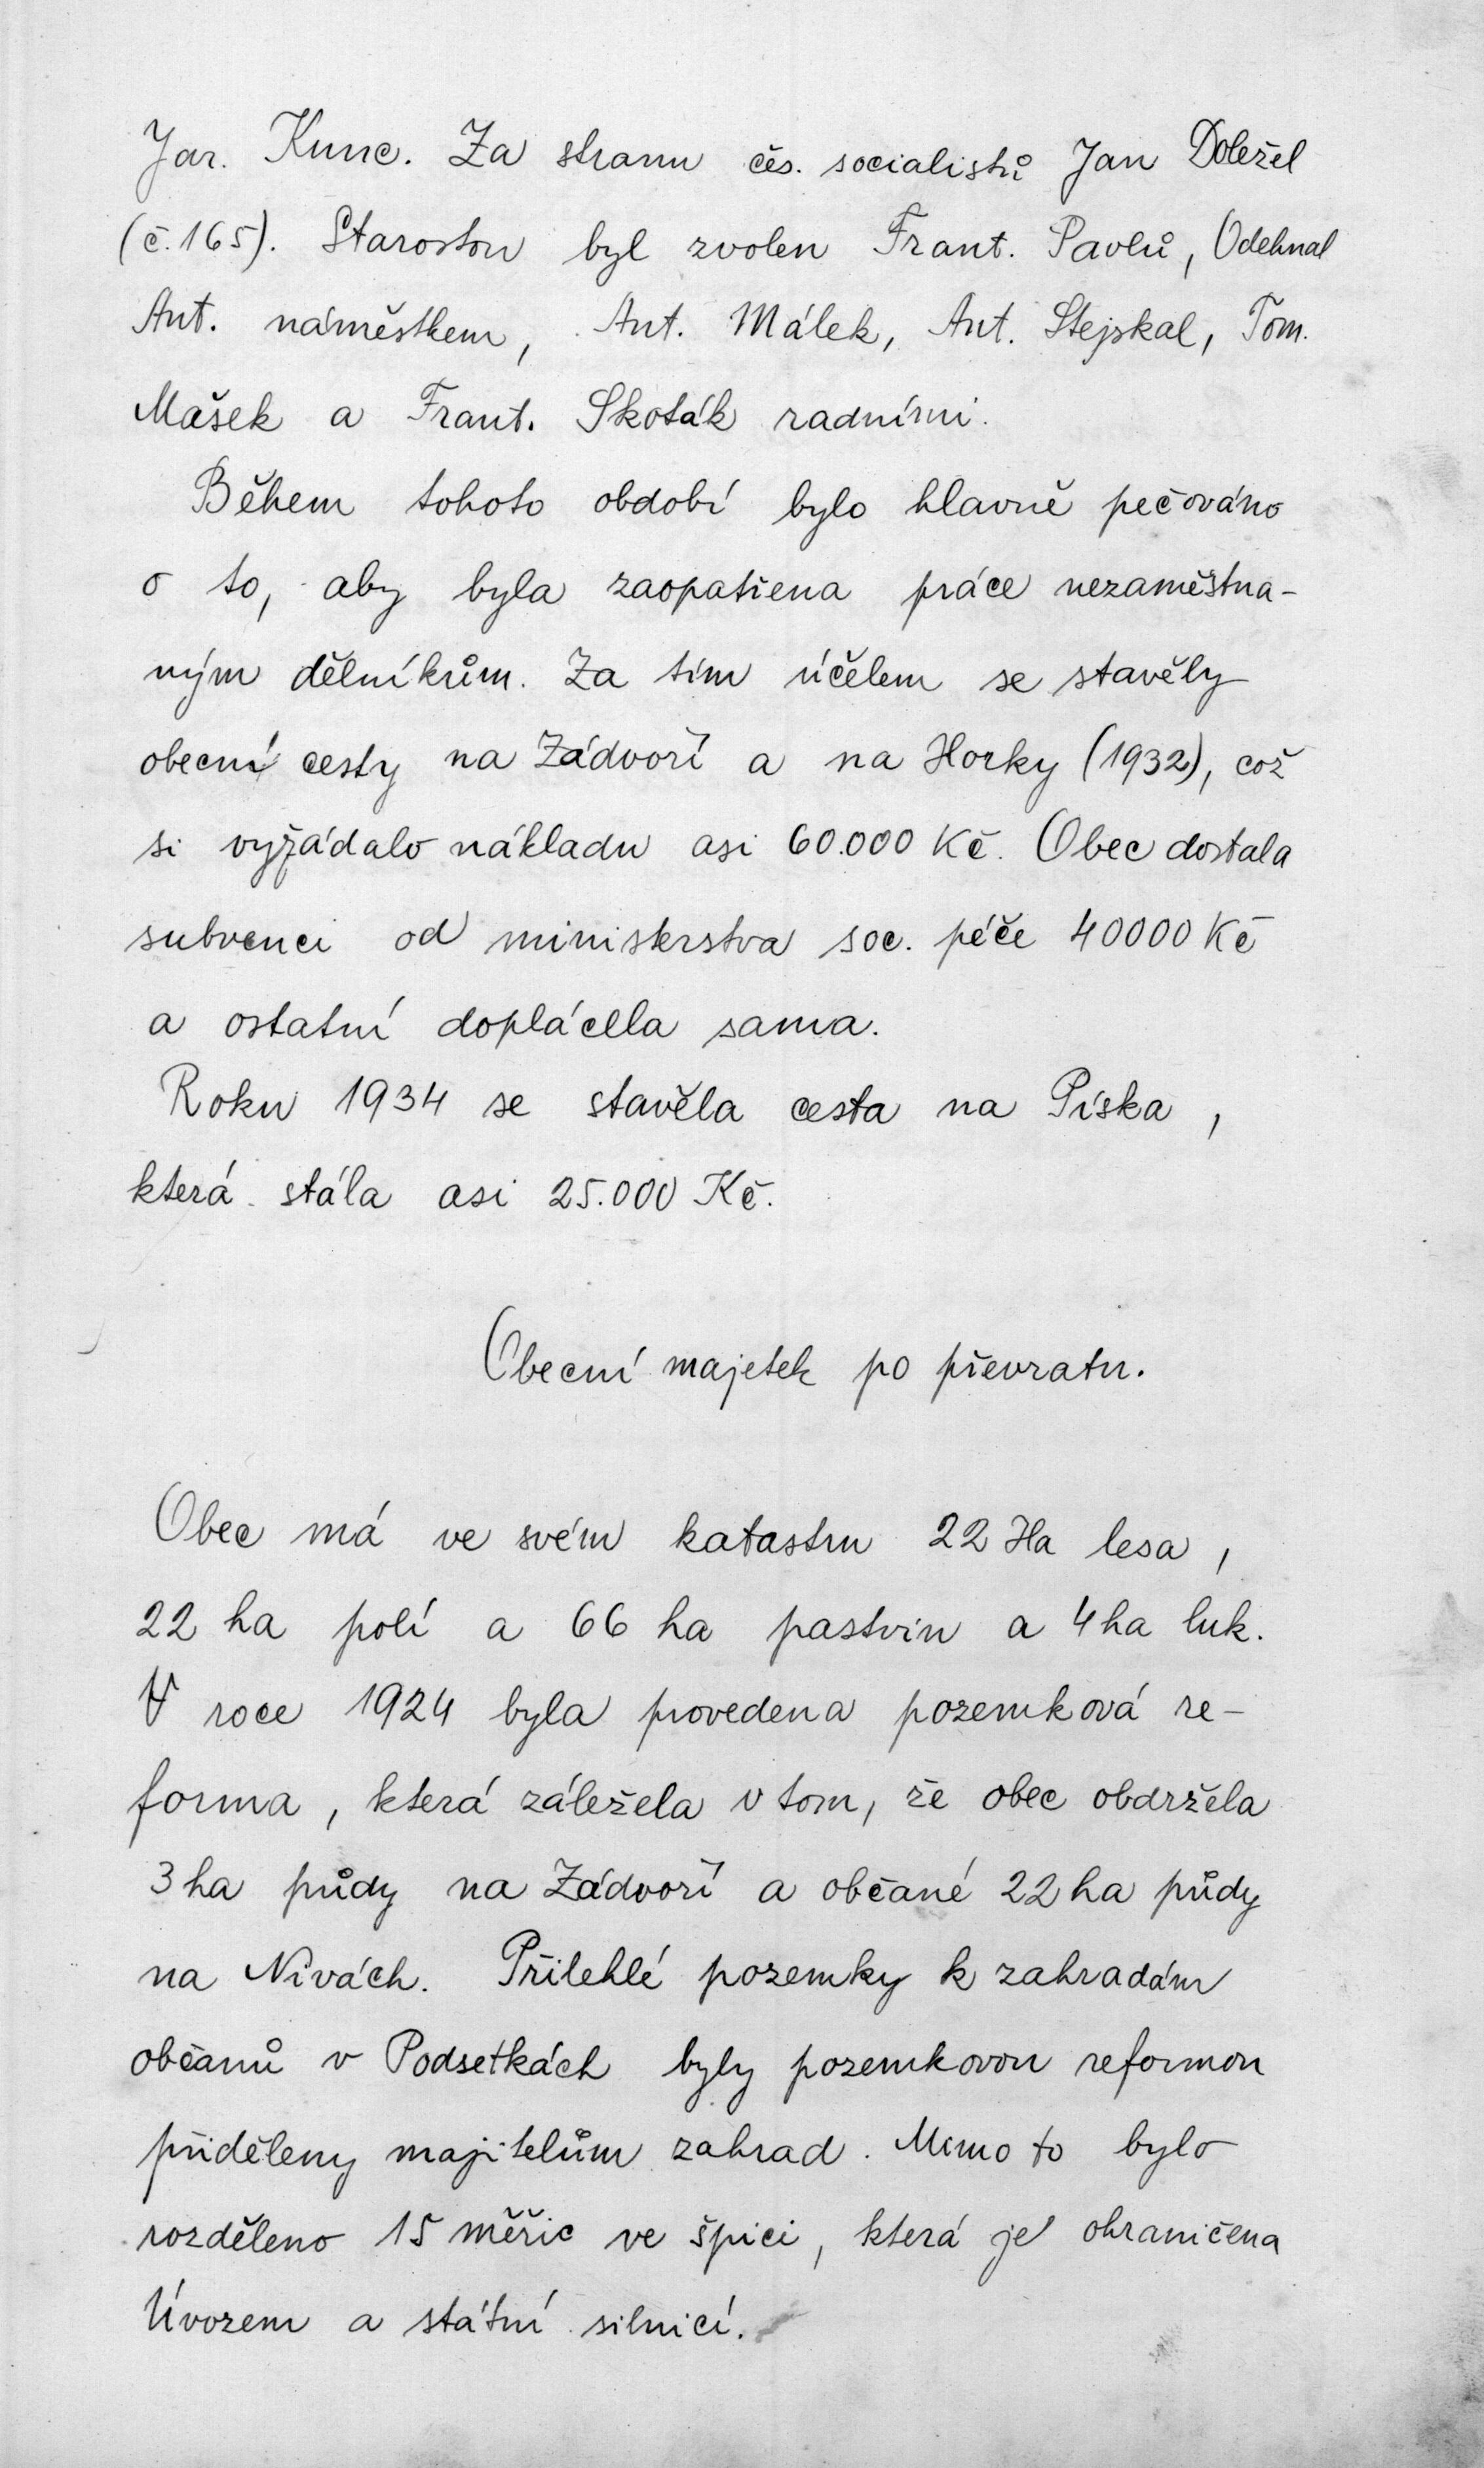 Jar. Kunc. Za stranu čes. socialistů Jan Doležel
(č. 165). Starostou byl zvolen Frant. Pavlů, Odehnal
Ant. náměstkem, Ant. Málek, Ant. Stejskal, Tom.
Mašek a Frant. Skoták radními.
Během tohoto období bylo hlavně pečováno
o to, aby byla zaopatřena práce nezaměstna-
ným dělníkům. Za tím účelem se stavěly
obecní cesty na Zádvoří a na Horky (1932), což
si vyžádalo nákladu asi 60.000 Kč. Obec dostala
subvenci od ministerstva soc. péče 40000 Kč
a ostatní doplácela sama.
Roku 1934 se stavěla cesta na Píska,
která stála asi 25.000 Kč.
Obecní majetek po převratu.
Obec má ve svém katastru 22 Ha lesa,
22 ha polí a 66 ha pastvin a 4 ha luk.
V roce 1924 byla provedena pozemková re-
forma, která záležela v tom, že obec obdržela
3 ha půdy na Zádvoří a občané 22 ha půdy
na Nivách. Přilehlé pozemky k zahradám
občanů v Podsetkách byly pozemkovou reformou
přiděleny majitelům zahrad. Mimo to bylo
rozděleno 15 měřic ve špici, která je ohraničena
Úvozem a státní silnicí.